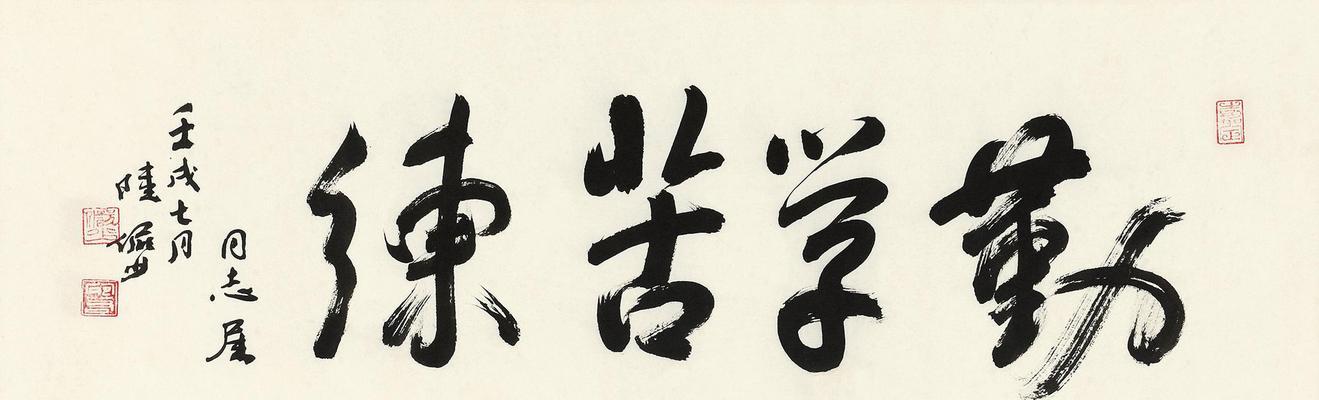 勤学苦練
同志属
壬戌七月
陸儼少